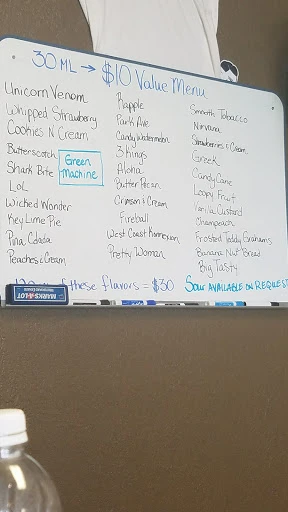 30ML → $10 Value Menu
Unicorn Venom
Whipped Strawberry
Cookies N Cream
Butterscotch
Shark Bite
LOL
Wicked Wonder
Key Lime Pie
Pina Colada
Peaches & Cream
Green
Machine
Rapple
Park Ave
Candy Watermelon
3 Kings
Aloha
Butter Pecan
Crimson & Cream
Fireball
West Coast Konnexion
Pretty Woman
Smooth Tobacco
Nirvana
Strawberries & Cream
Greek
Candy Cane
Loopy Fruit
Vanilla Custard
Champeach
Frosted Teddy Grahams
Banana Nut Bread
Big Tasty
of these flavors = $30
Sour AVAILABLE ON REQUEST
MARKS-A-LOT